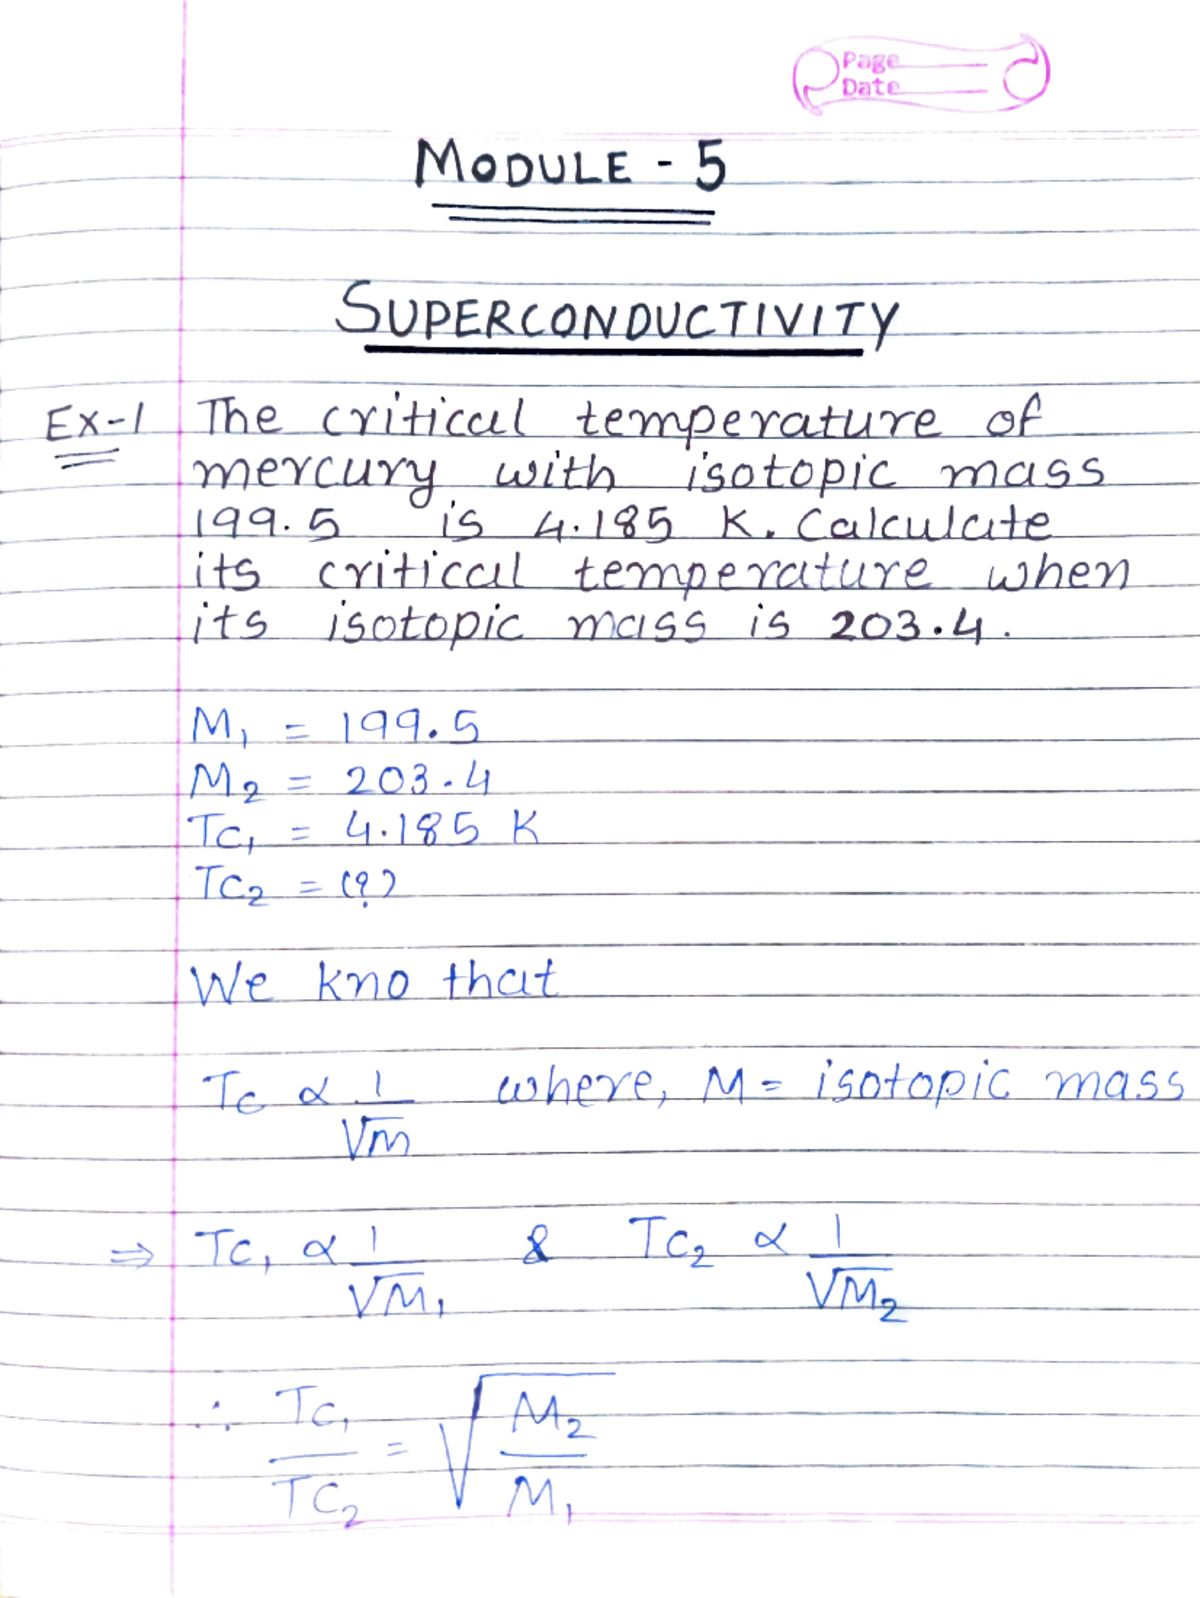 Page
Date
MODULE - 5
SUPERCONDUCTIVITY
Ex-1 The critical temperature of
mercury with isotopic mass
199.5 is 4.185 K. Calculate
its critical temperature when
its isotopic mass is 203.4.
M₁ = 199.5
M₂ = 203.4
Tc₁ = 4.185 K
Tc₂ = (?)
We kno that
Tc ∝ 1/√m where, M = isotopic mass
⇒ Tc₁ ∝ 1/√M₁ & Tc₂ ∝ 1/√M₂
∴ Tc₁/Tc₂ = √(M₂/M₁)